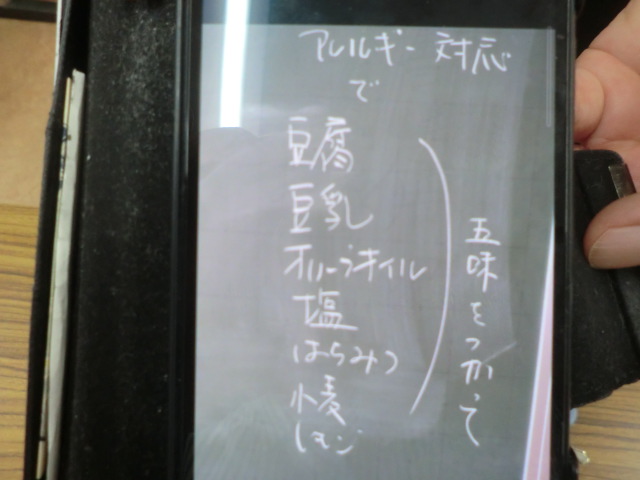 アレルギー対応
で
豆腐
豆乳
オリーブオイル
塩
はちみつ
小麦
レモン
五味をつかって